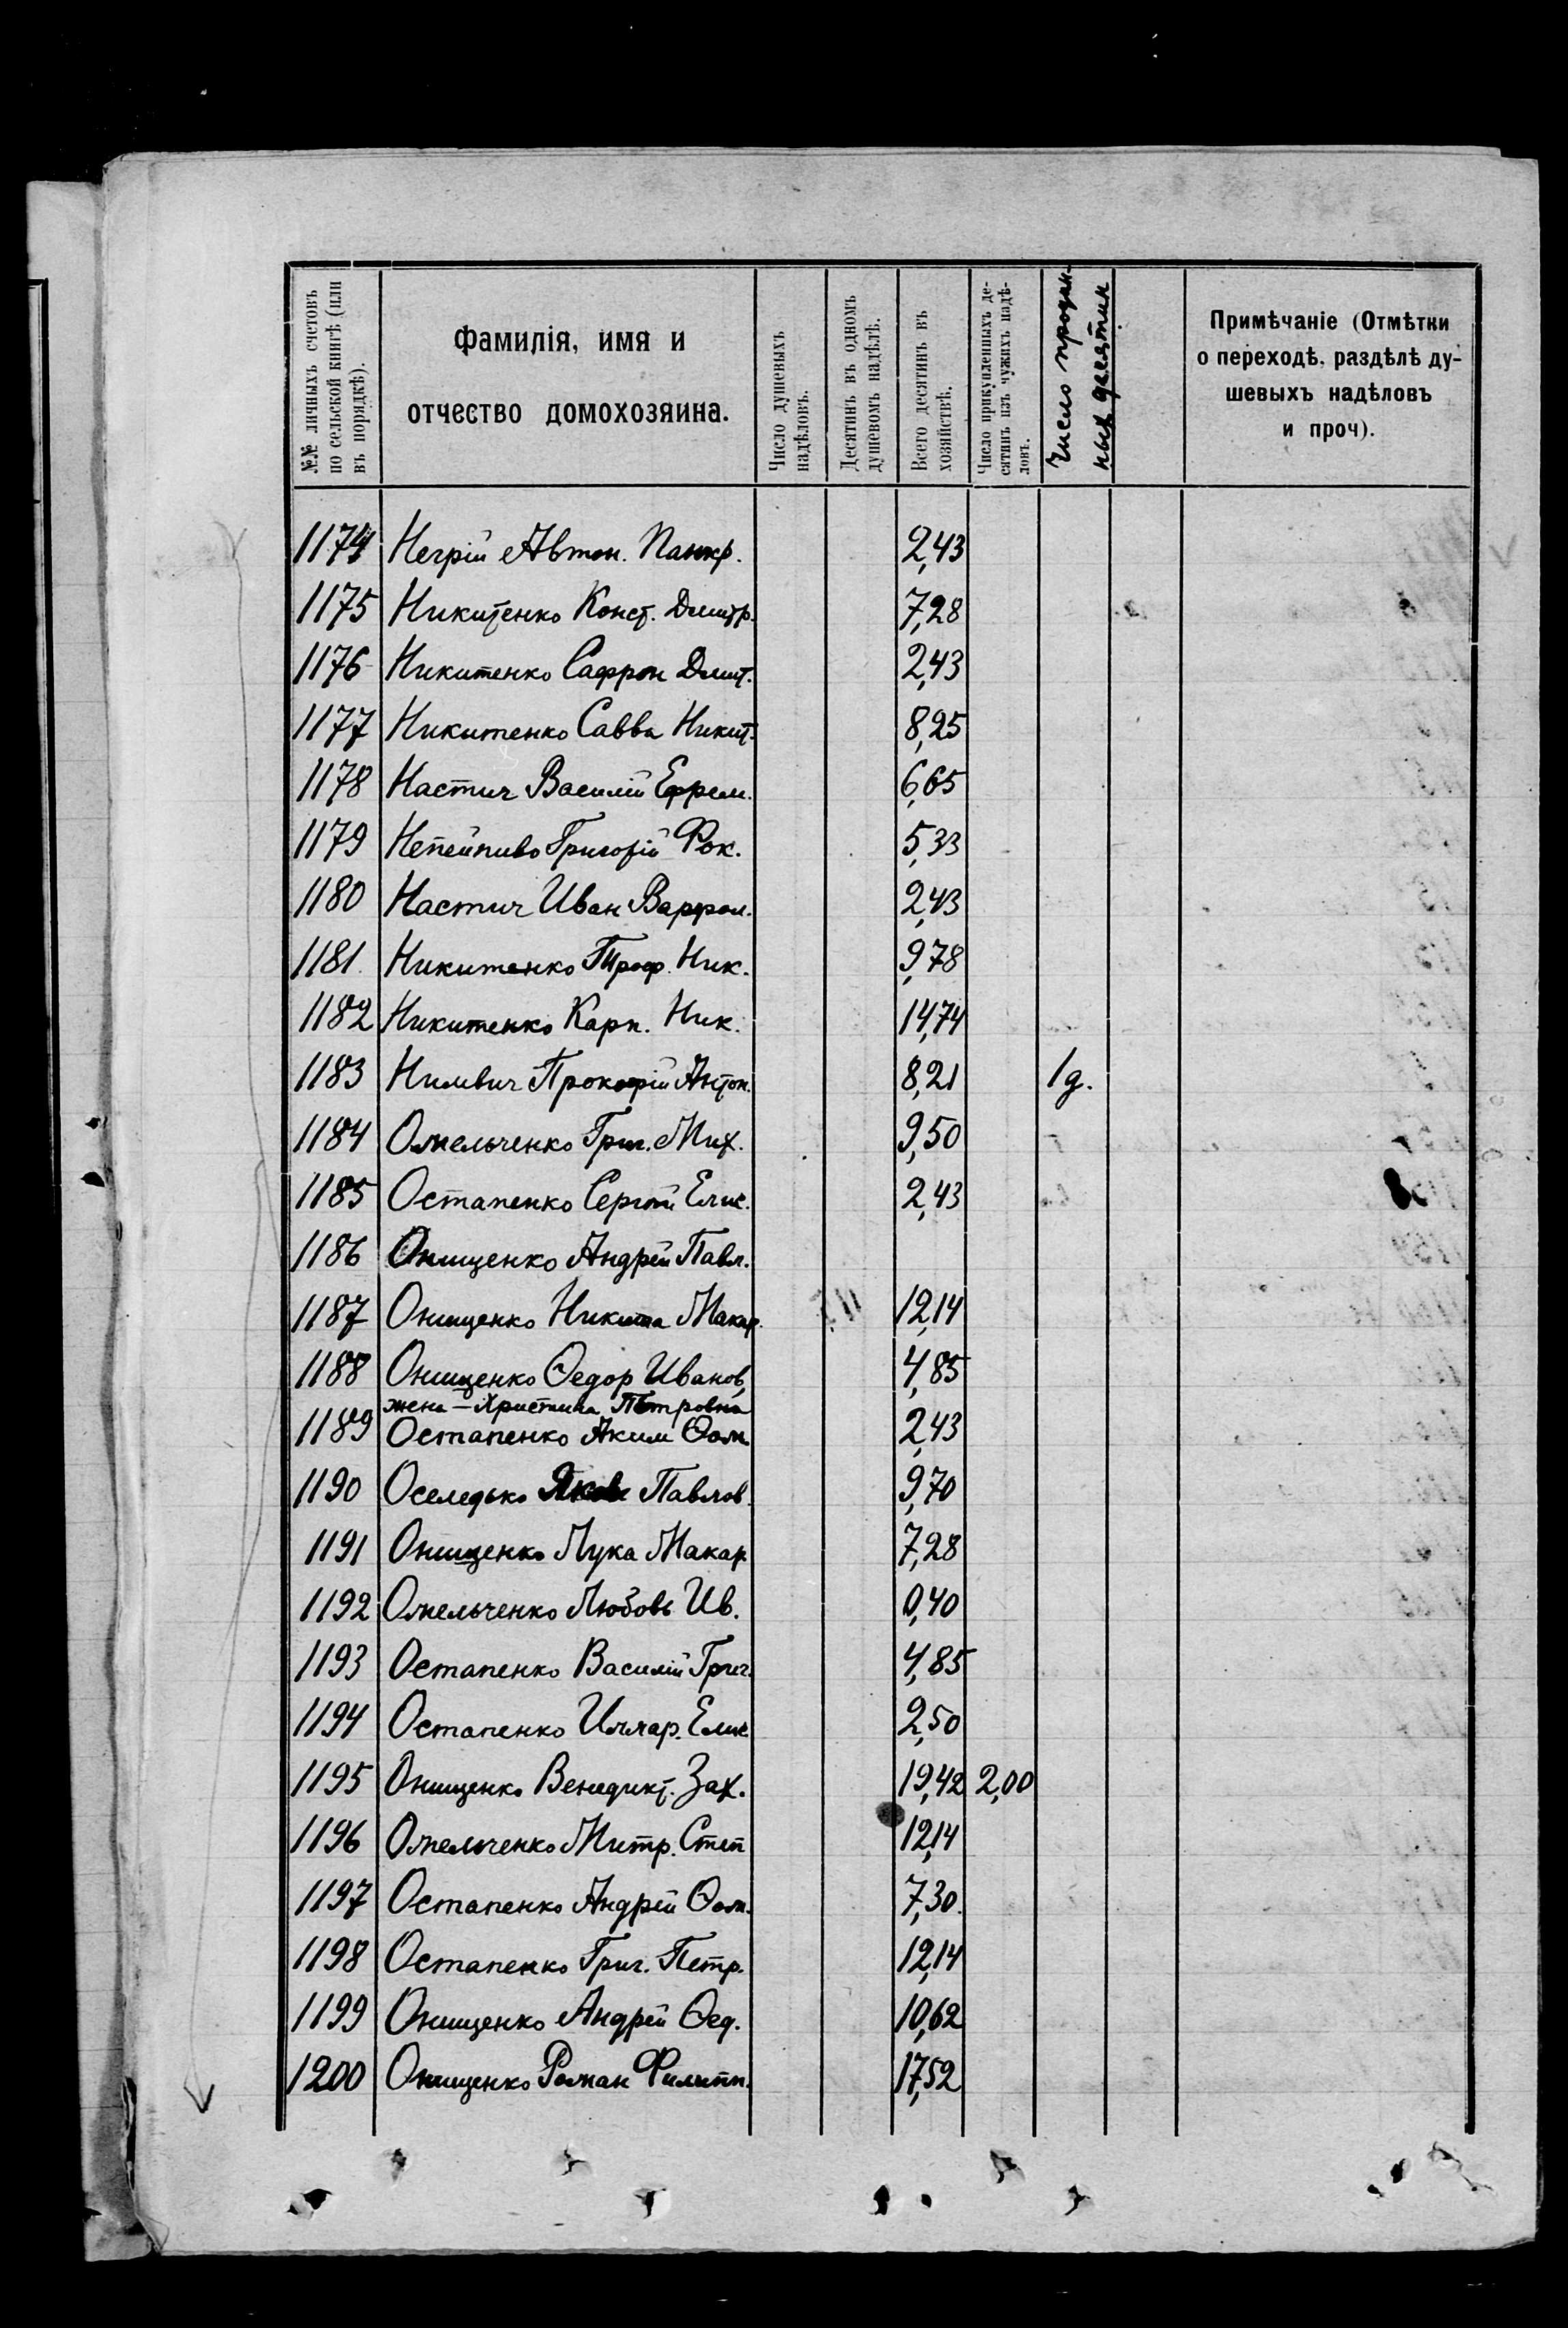 №№ личныхъ счетовъ по сельской книгѣ (или въ порядкѣ).
Фамилія, имя и отчество домохозяина.
Число душевыхъ надѣловъ.
Десятинъ въ одномъ душевомъ надѣлѣ.
Всего десятинъ въ хозяйствѣ.
Число прикупленныхъ десятинъ изъ чужихъ надѣловъ.
Число продан-
ных десятин
Примѣчаніе (Отмѣтки
о переходѣ, раздѣлѣ ду-
шевыхъ надѣловъ
и проч).
1174 Негрій Автон. Панкр. 2,43
1175 Никитенко Конст. Димтр. 7,28
1176 Никитенко Сафрон Дмит. 2,43
1177 Никитенко Савва Никит. 8,25
1178 Настич Василій Ефрем. 6,65
1179 Непейпиво Григорій Фок. 5,33
1180 Настич Иван Варфол. 2,43
1181 Никитенко Троф. Ник. 9,78
1182 Никитенко Карп. Ник. 14,74
1183 Прокофій Антон. 8,21 1 д.
1184 Омельченко Григ. Мих. 9,50
1185 Остапенко Сергій Елис. 2,43
1186 Онищенко Андрей Павл.
1187 Онищенко Никита Макар. 12,14
1188 Онищенко Ѳедор Иванов, 4,85
жена – Христина Петровна
1189 Остапенко Аким Ѳом. 2,43
1190 Оселедько Яков Павлов. 9,70
1191 Онищенко Лука Макар 7,28
1192 Омельченко Любовь Ив. 0,40
1193 Остапенко Василій Григ. 4,85
1194 Остапенко Иллар. Елис 2,50
1195 Онищенко Венедикт. Зах. 19,42 2,00
1196 Омельченко Митр. Степ 12,14
1197 Остапенко Андрей Ѳом. 7,30
1198 Остапенко Григ. Петр. 12,14
1199 Онищенко Андрей Ѳед. 10,62
1200 Онищенко Роман Филипп. 17,52